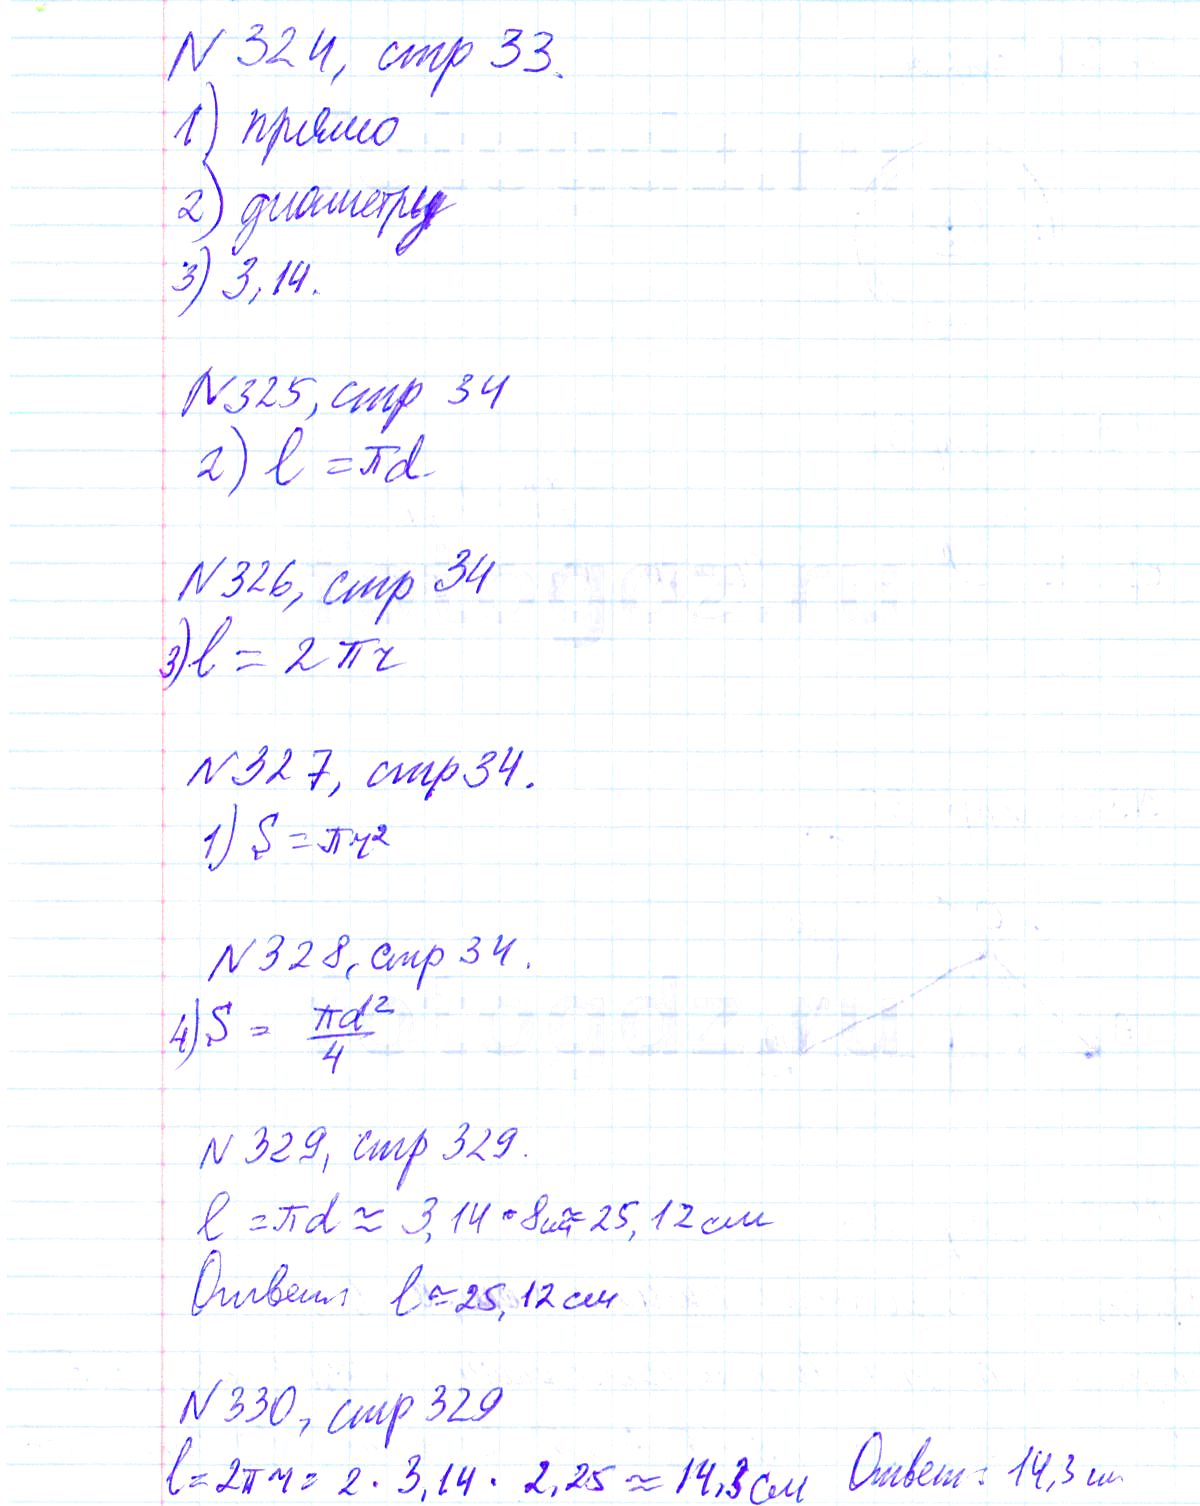 N 324, стр 33.
1) прямо
2) диаметру
3) 3,14.
N325, стр 34
2) l = πd
N326, стр 34
3) l = 2πr
N327, стр 34.
1) S = πr²
N328, стр 34.
4) S = πd²/4
N329, стр 329.
l = πd ≈ 3,14 · 8см ≈ 25,12 см
Ответ: l ≈ 25,12 см
N330, стр 329
l = 2πr = 2 · 3,14 · 2,25 ≈ 14,3 см Ответ: 14,3 см